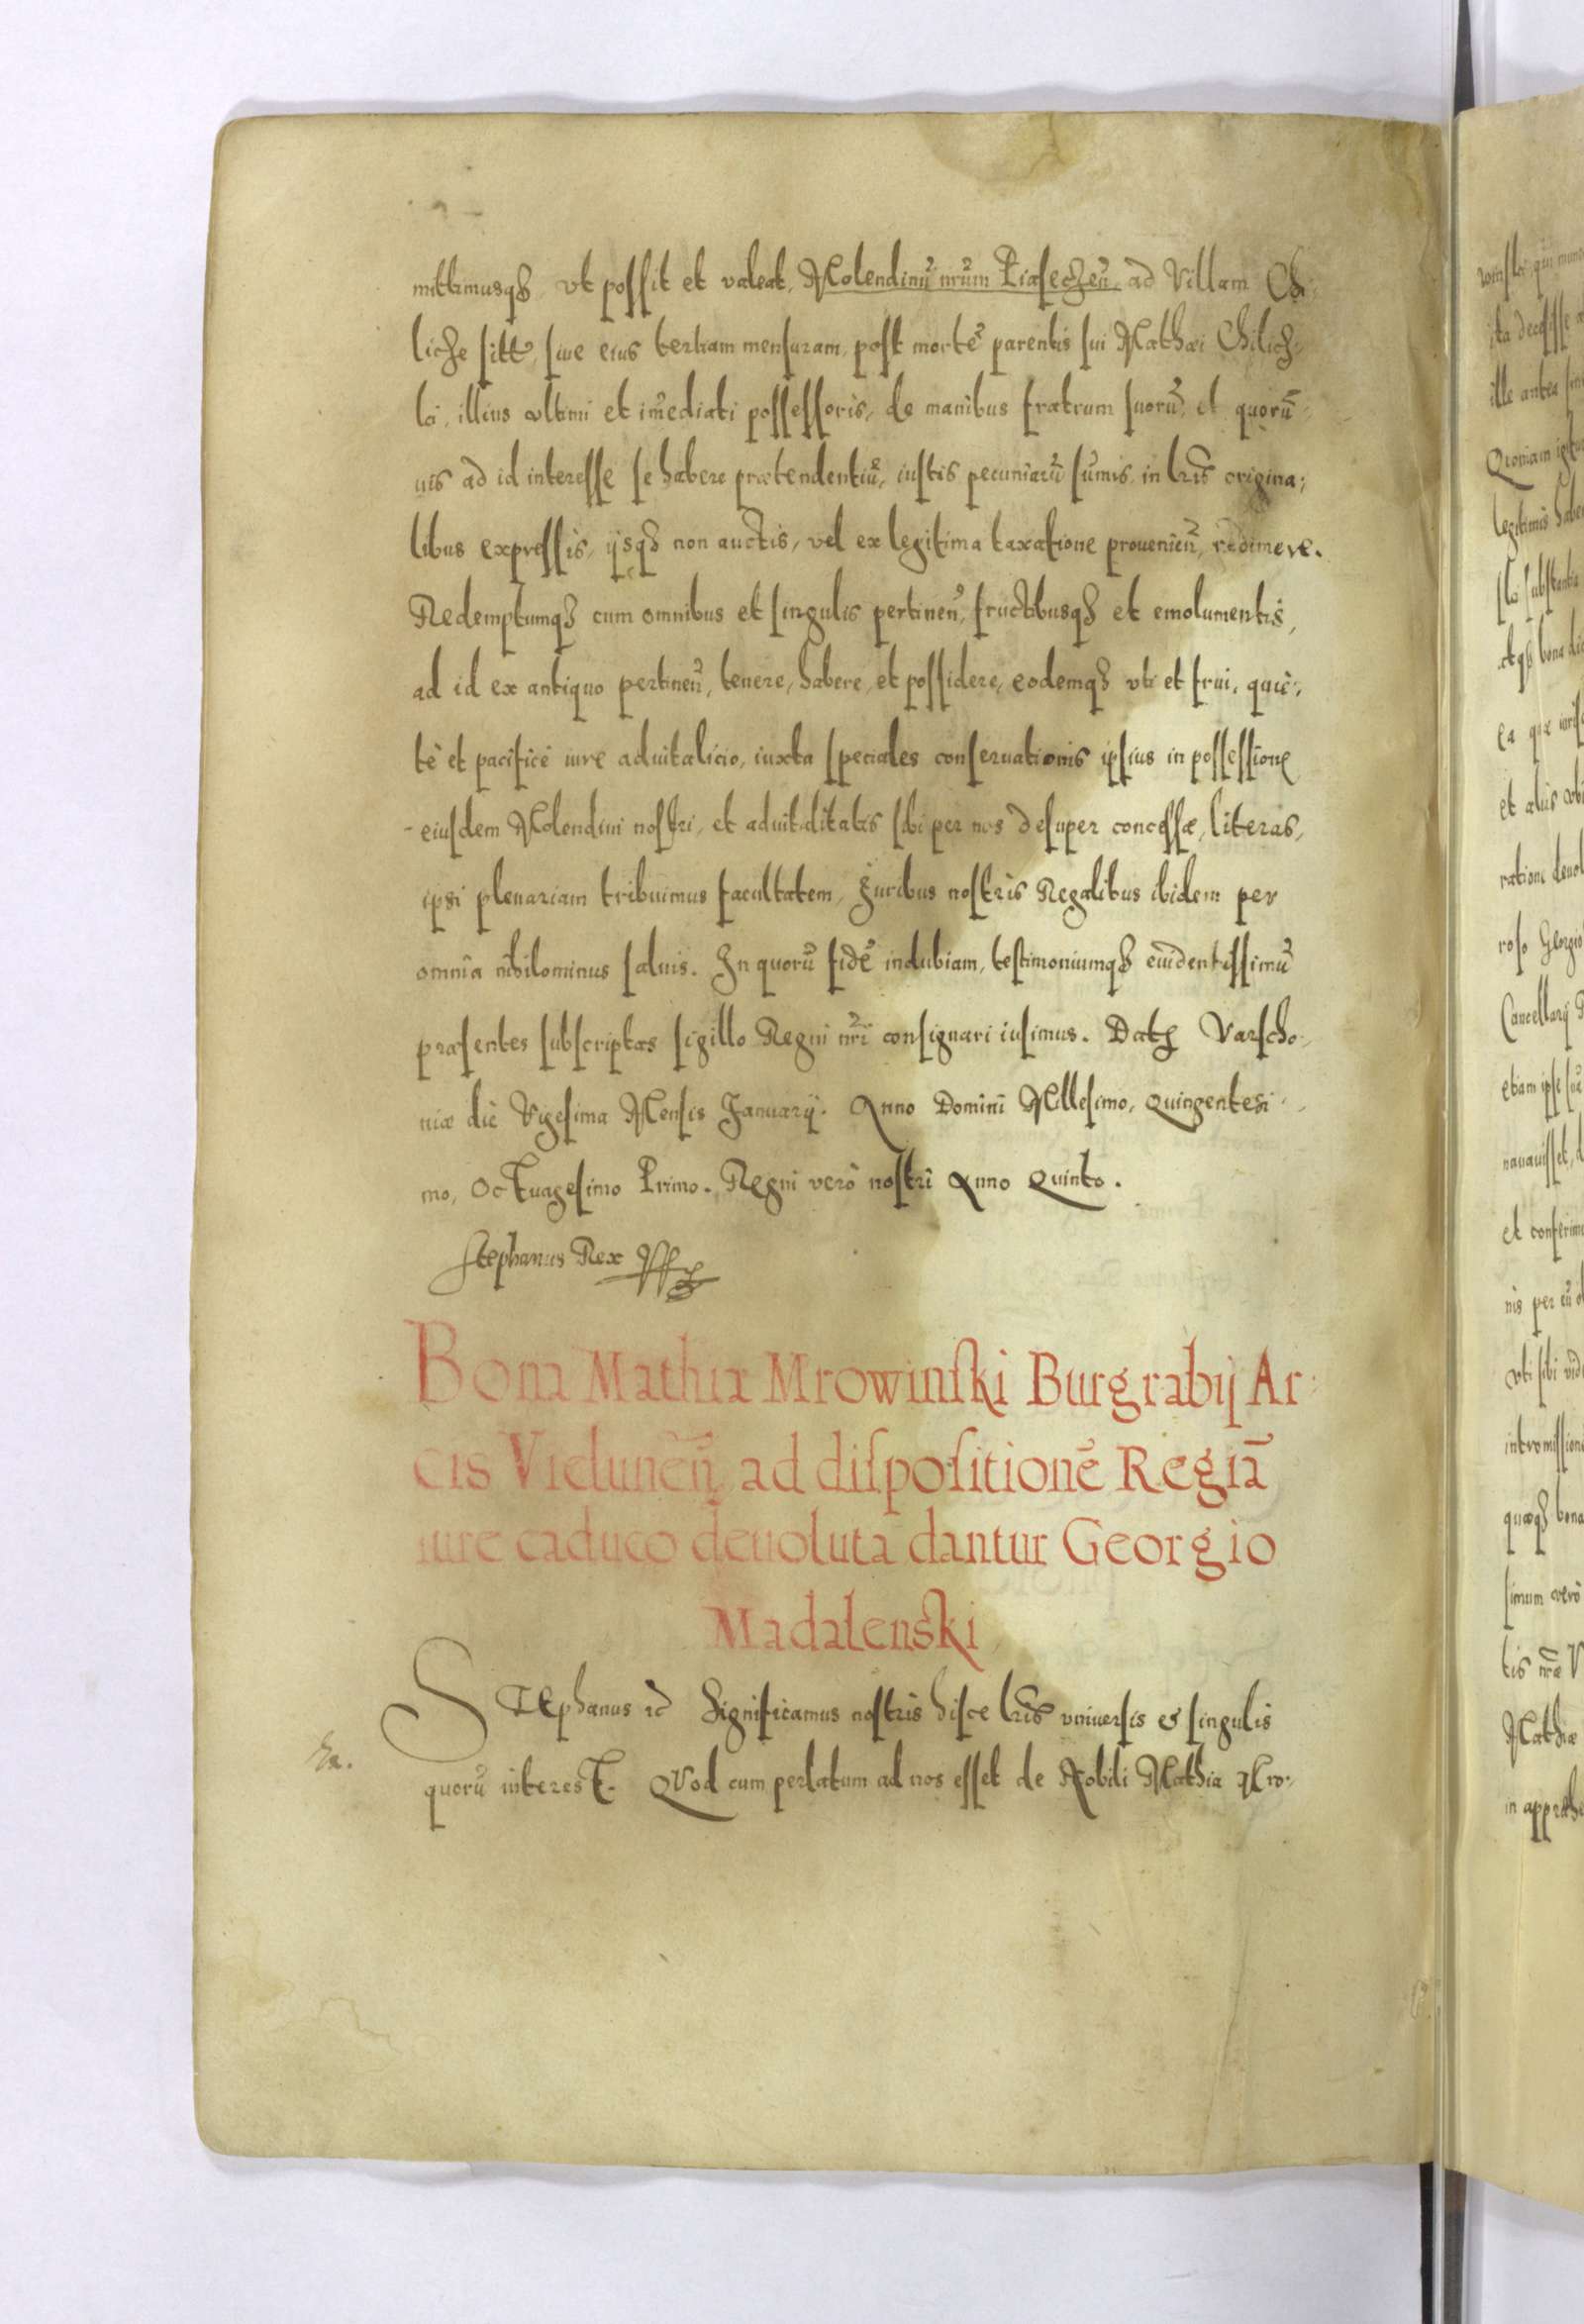 mittimusq₃ vt possit et valeat, Molendinũ nr̃um Piasecʒeñ. ad Villam Chi-
licʒe sitt, siue eius tertiam mensuram, post mortẽ parentis sui Mathæi Chilicʒ-
ki, illius vltimi et im̃ediati possessoris, de manibus fratrum suorũ, et quorũ-
uis ad id interesse se habere prætendentiũ, iustis pecuniarũ sum̃is in lr̃is origina-
libus expressis, ijsq₃ non auctis, vel ex legitima taxatione proueniẽn, redimere.
Redemptumq₃ cum omnibus et singulis pertineñ, fructibusq₃ et emolumentis,
ad id ex antiquo pertineñ, tenere, habere, et possidere, eodemq₃ vti et frui, quiè-
tè et pacificè iure aduitalicio, iuxta speciales conseruationis ipsius in possessione
eiusdem Molendini nostri, et aduitalitatis sibi per nos desuper concessæ, literas,
ipsi plenariam tribuimus facultatem, Juribus nostris Regalibus ibidem per
omnia nihilominus saluis. In quorũ fidẽ indubiam, testimoniumq₃ euidentissimũ
præsentes subscriptas sigillo Regni nr̃i consignari iusimus. Dat₃ Varscho-
niæ diè Vigesima Mensis Januarij. Anno Domini Millesimo, Quingentesi-
mo, Octuagesimo Primo. Regni verò nostri Anno Quinto.
Stephanus Rex
Bona Mathiæ Mrowinski Burgrabij Ar-
cis Vielunẽñ ad dispositionẽ Regiã
iure caduco deuoluta dantur Georgio
Madalenski
STEphanus Significamus nostris hisce lr̃is vniuersis et singulis
quorũ interest. Quod cum perlatum ad nos esset de Nobili Mathia Mro-